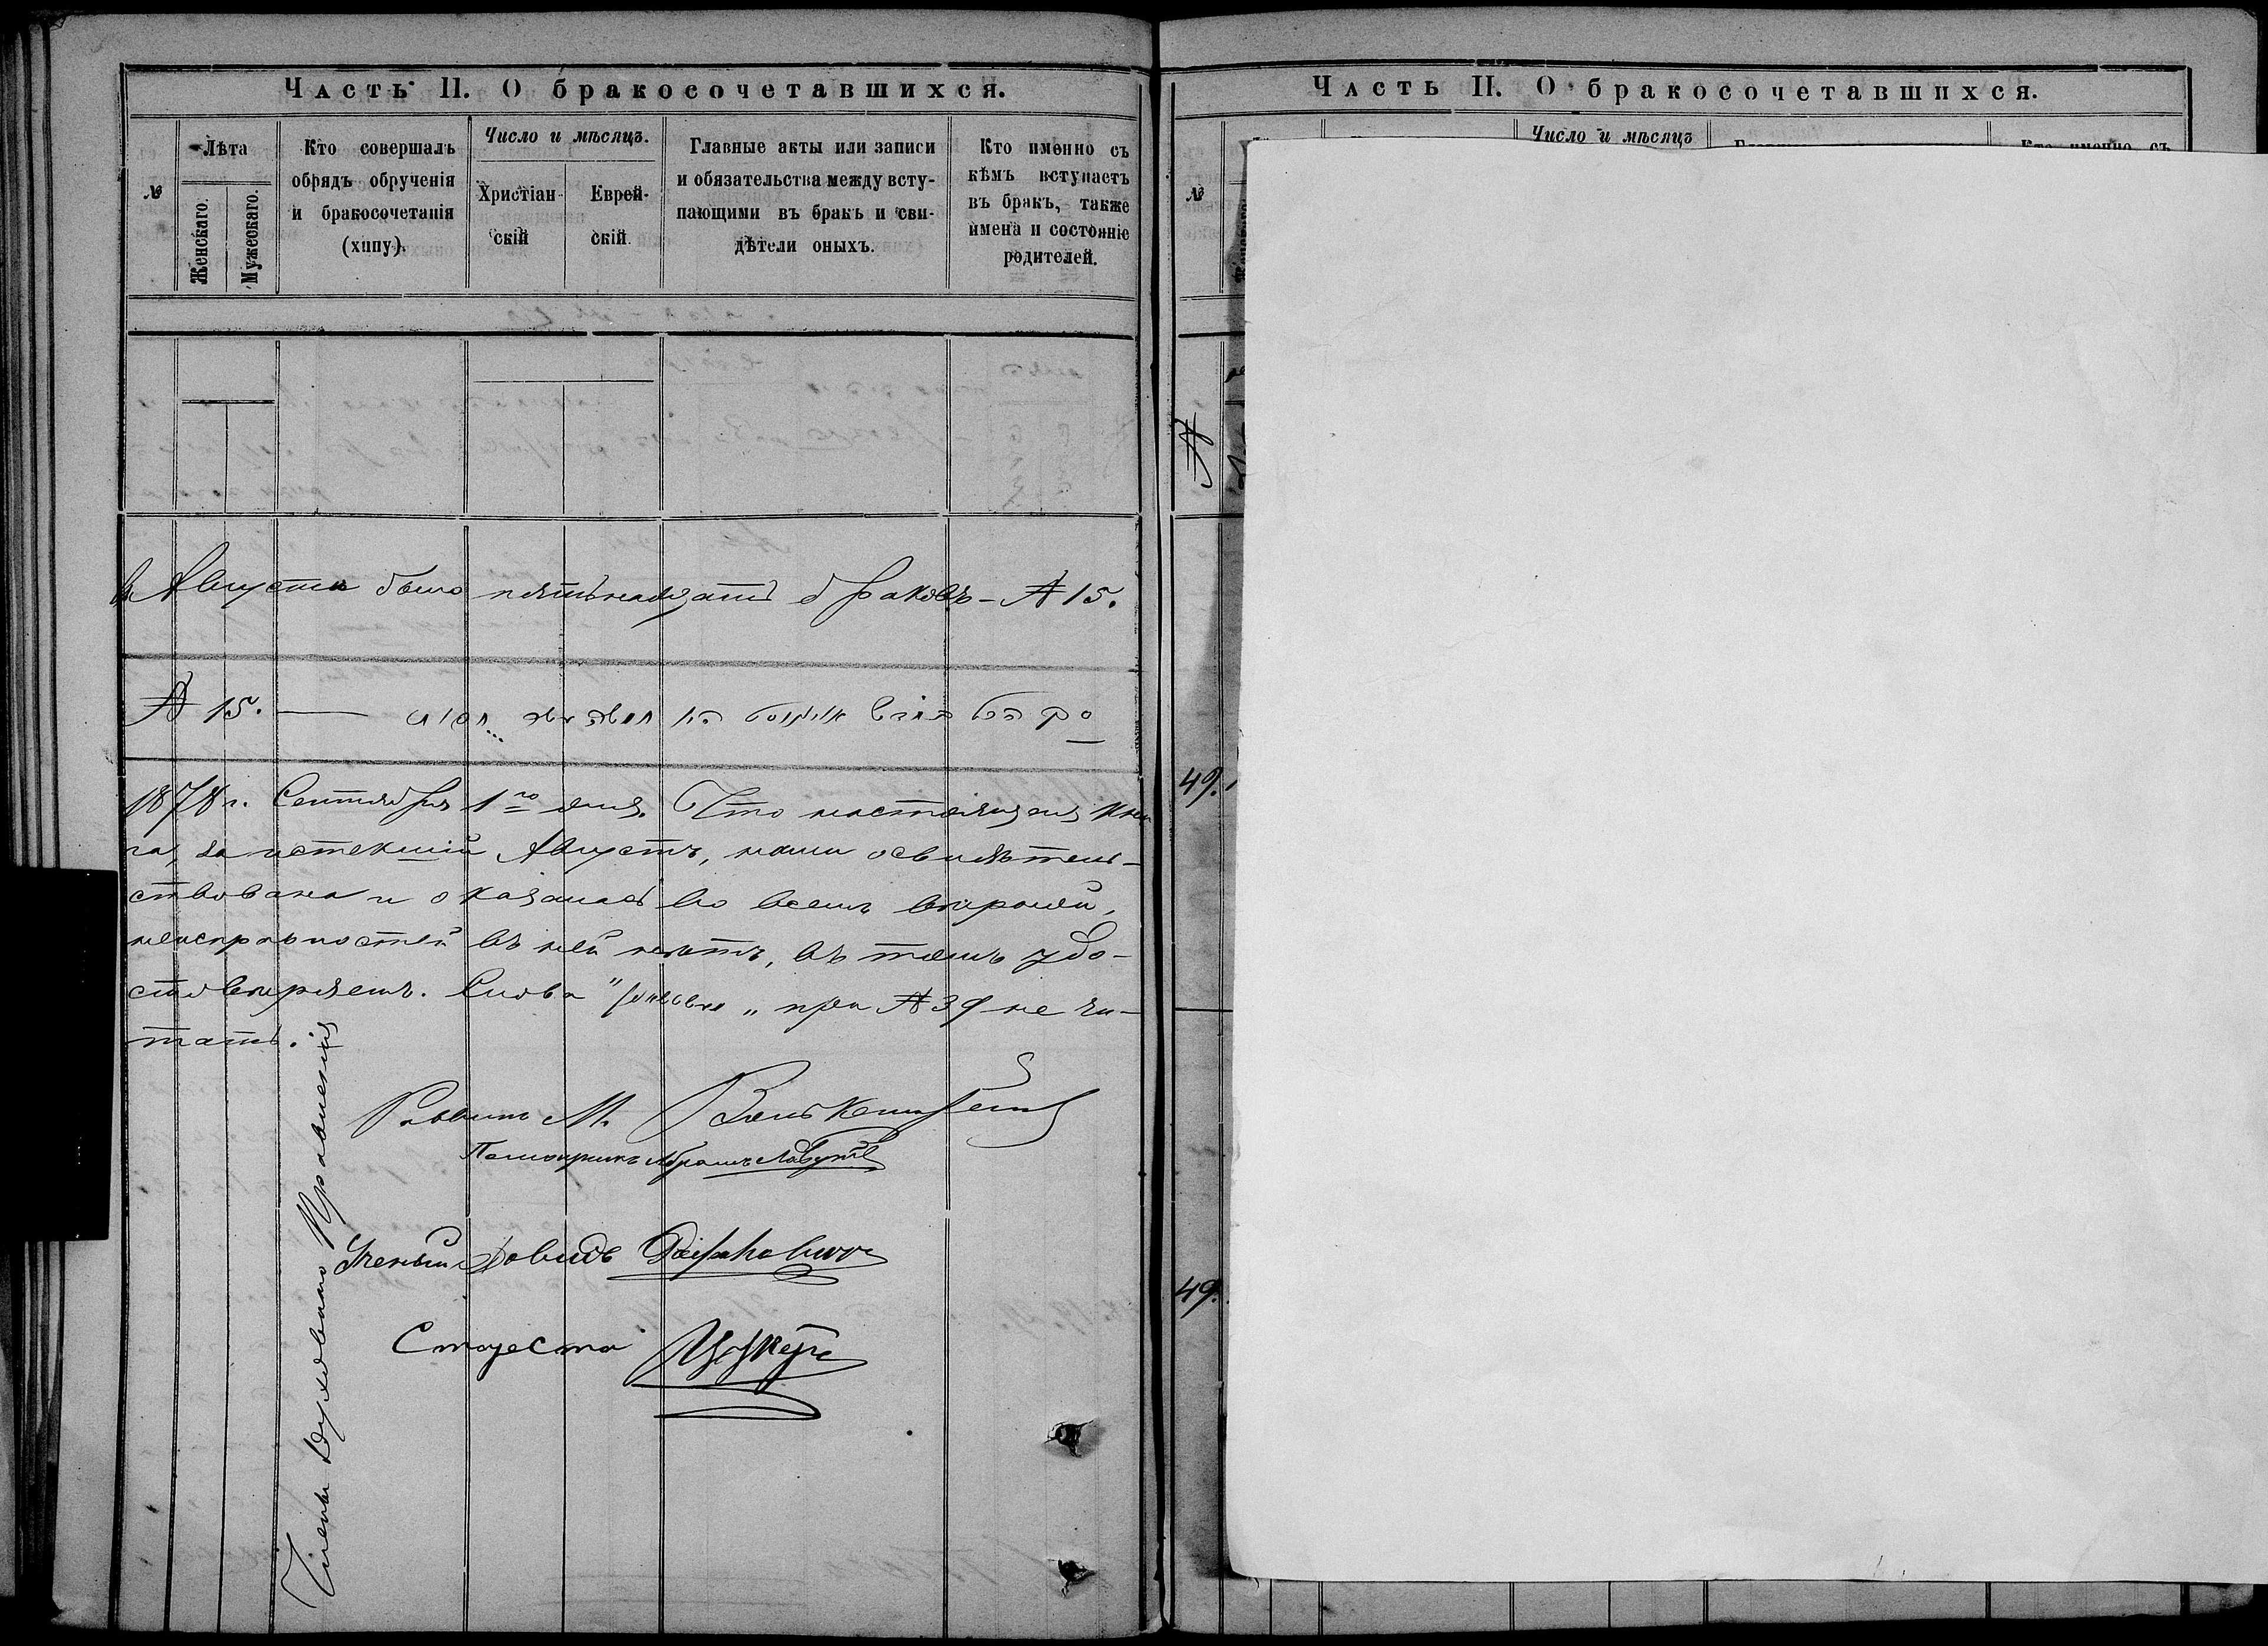 Часть II. О бракосочетавшихся.
№
Лѣта
Женскаго.
Мужескаго.
Кто совершалъ
обрядъ обрученія
и бракосочетанія
(хипу).
Число и мѣсяцъ.
Христіан-
скій
Еврей-
скій.
Главные акты или записи
и обязательства между всту-
пающими въ бракъ и сви-
дѣтели оныхъ.
Кто именно съ
кѣмъ вступаетъ
въ бракъ, также
имена и состояніе
родителей.
въ Августѣ было пятьнадцать браковъ – № 15.
№ 15. —
1878 г. Сентября 1го дня. Что настоящая кни
га, за истекшій Августъ, нами освидѣтель-
ствована и оказалась во всемъ вѣрной,
неисправностей въ ней нѣтъ, въ томъ удо-
стовѣряемъ. Слова " „ при № 39 не чи-
тать.
Члены Духовнаго Правленія
Раввинъ М.
Помощникъ Абрамъ
Ученый Довидъ
Староста Цукеръ
Часть II. О бракосочетавшихся.
№
Число и мѣсяцъ
Кто именно съ
№
49.
49.